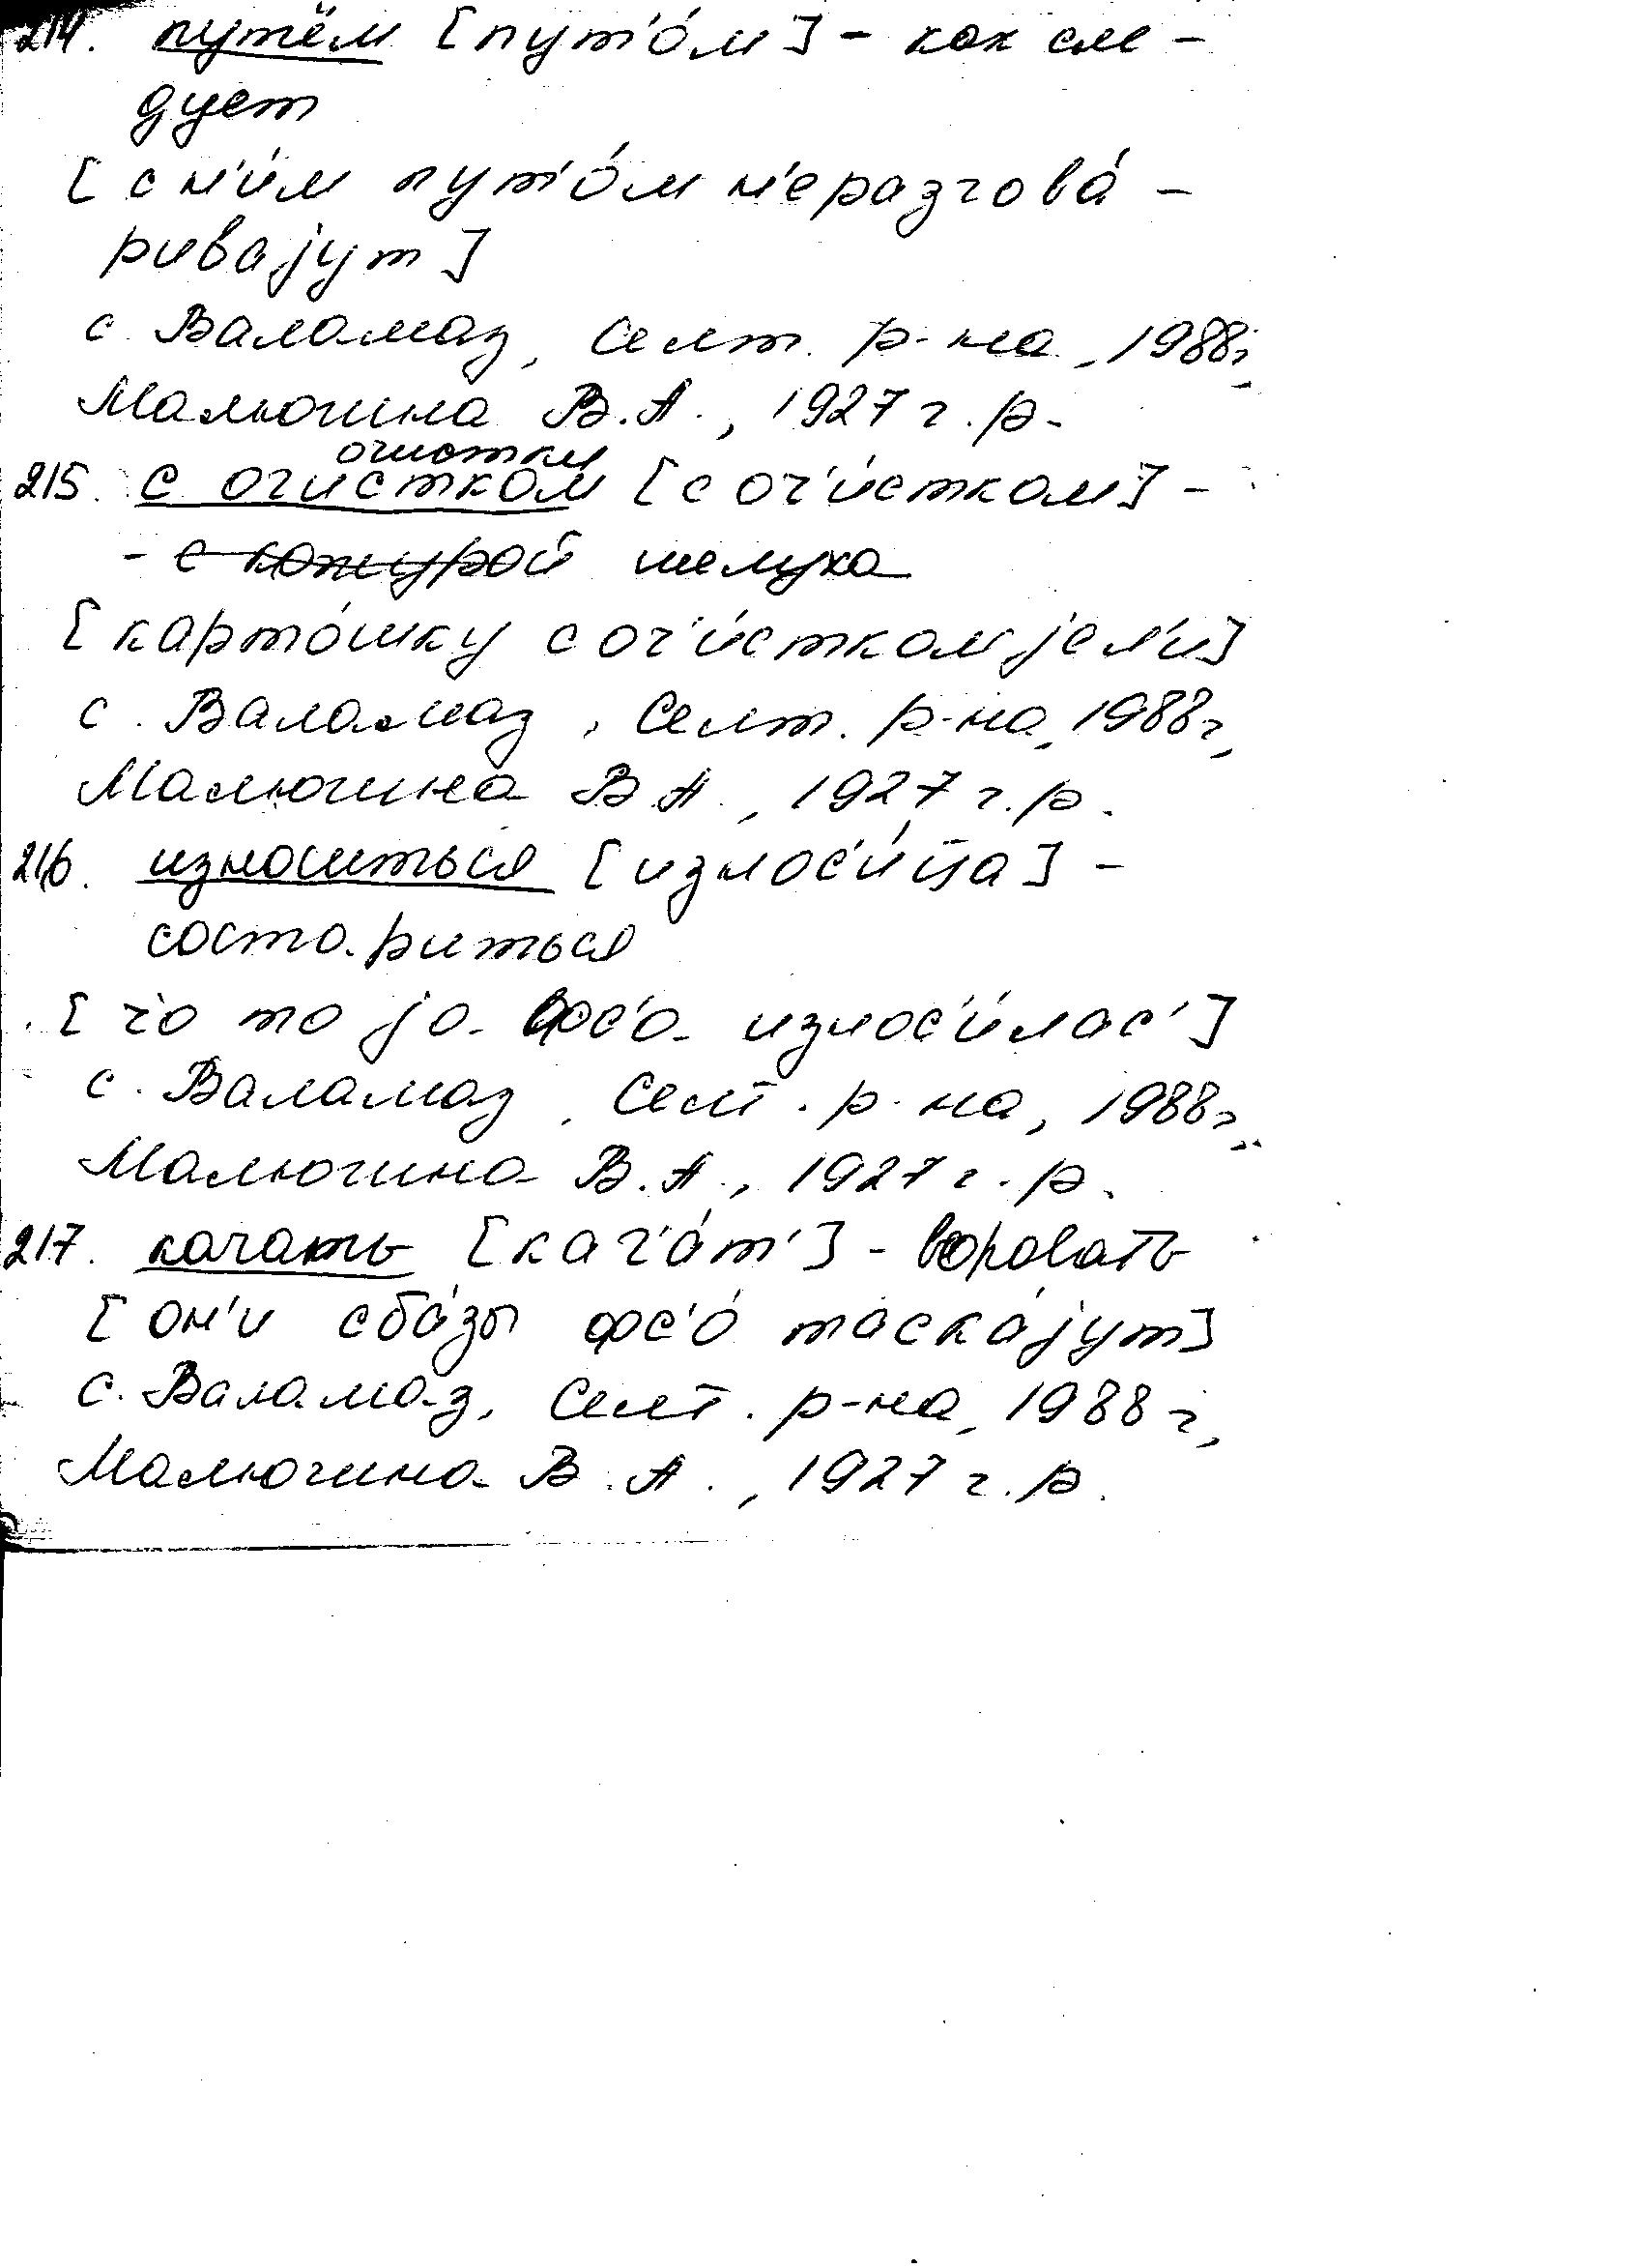 214. путём [пут'о́м] - как сле-
дует
[с н'и́м пут'о́м н'е разгова́-
ривајут]
с. Валамаз, Селт. р-на, 1988г,
Малюгина В.А., 1927 г.р.
очистки
215. с очистком [с оч'и́стком] -
- с кожурой шелуха
[карто́шку с оч'и́стком јел'и]
с. Валамаз, Селт. р-на, 1988г,
Малюгина В.А., 1927 г.р.
216. износиться [износ'и́ца] -
состариться
[ч'о то ја фс'а износ'и́лас']
с. Валамаз, Селт. р-на, 1988г,
Малюгина В.А., 1927 г.р.
217. качать [кач'а́т'] - воровать
[он'и с ба́зы фс'о́ таска́јут]
с. Валамаз, Селт. р-на, 1988 г,
Малюгина В.А., 1927 г.р.